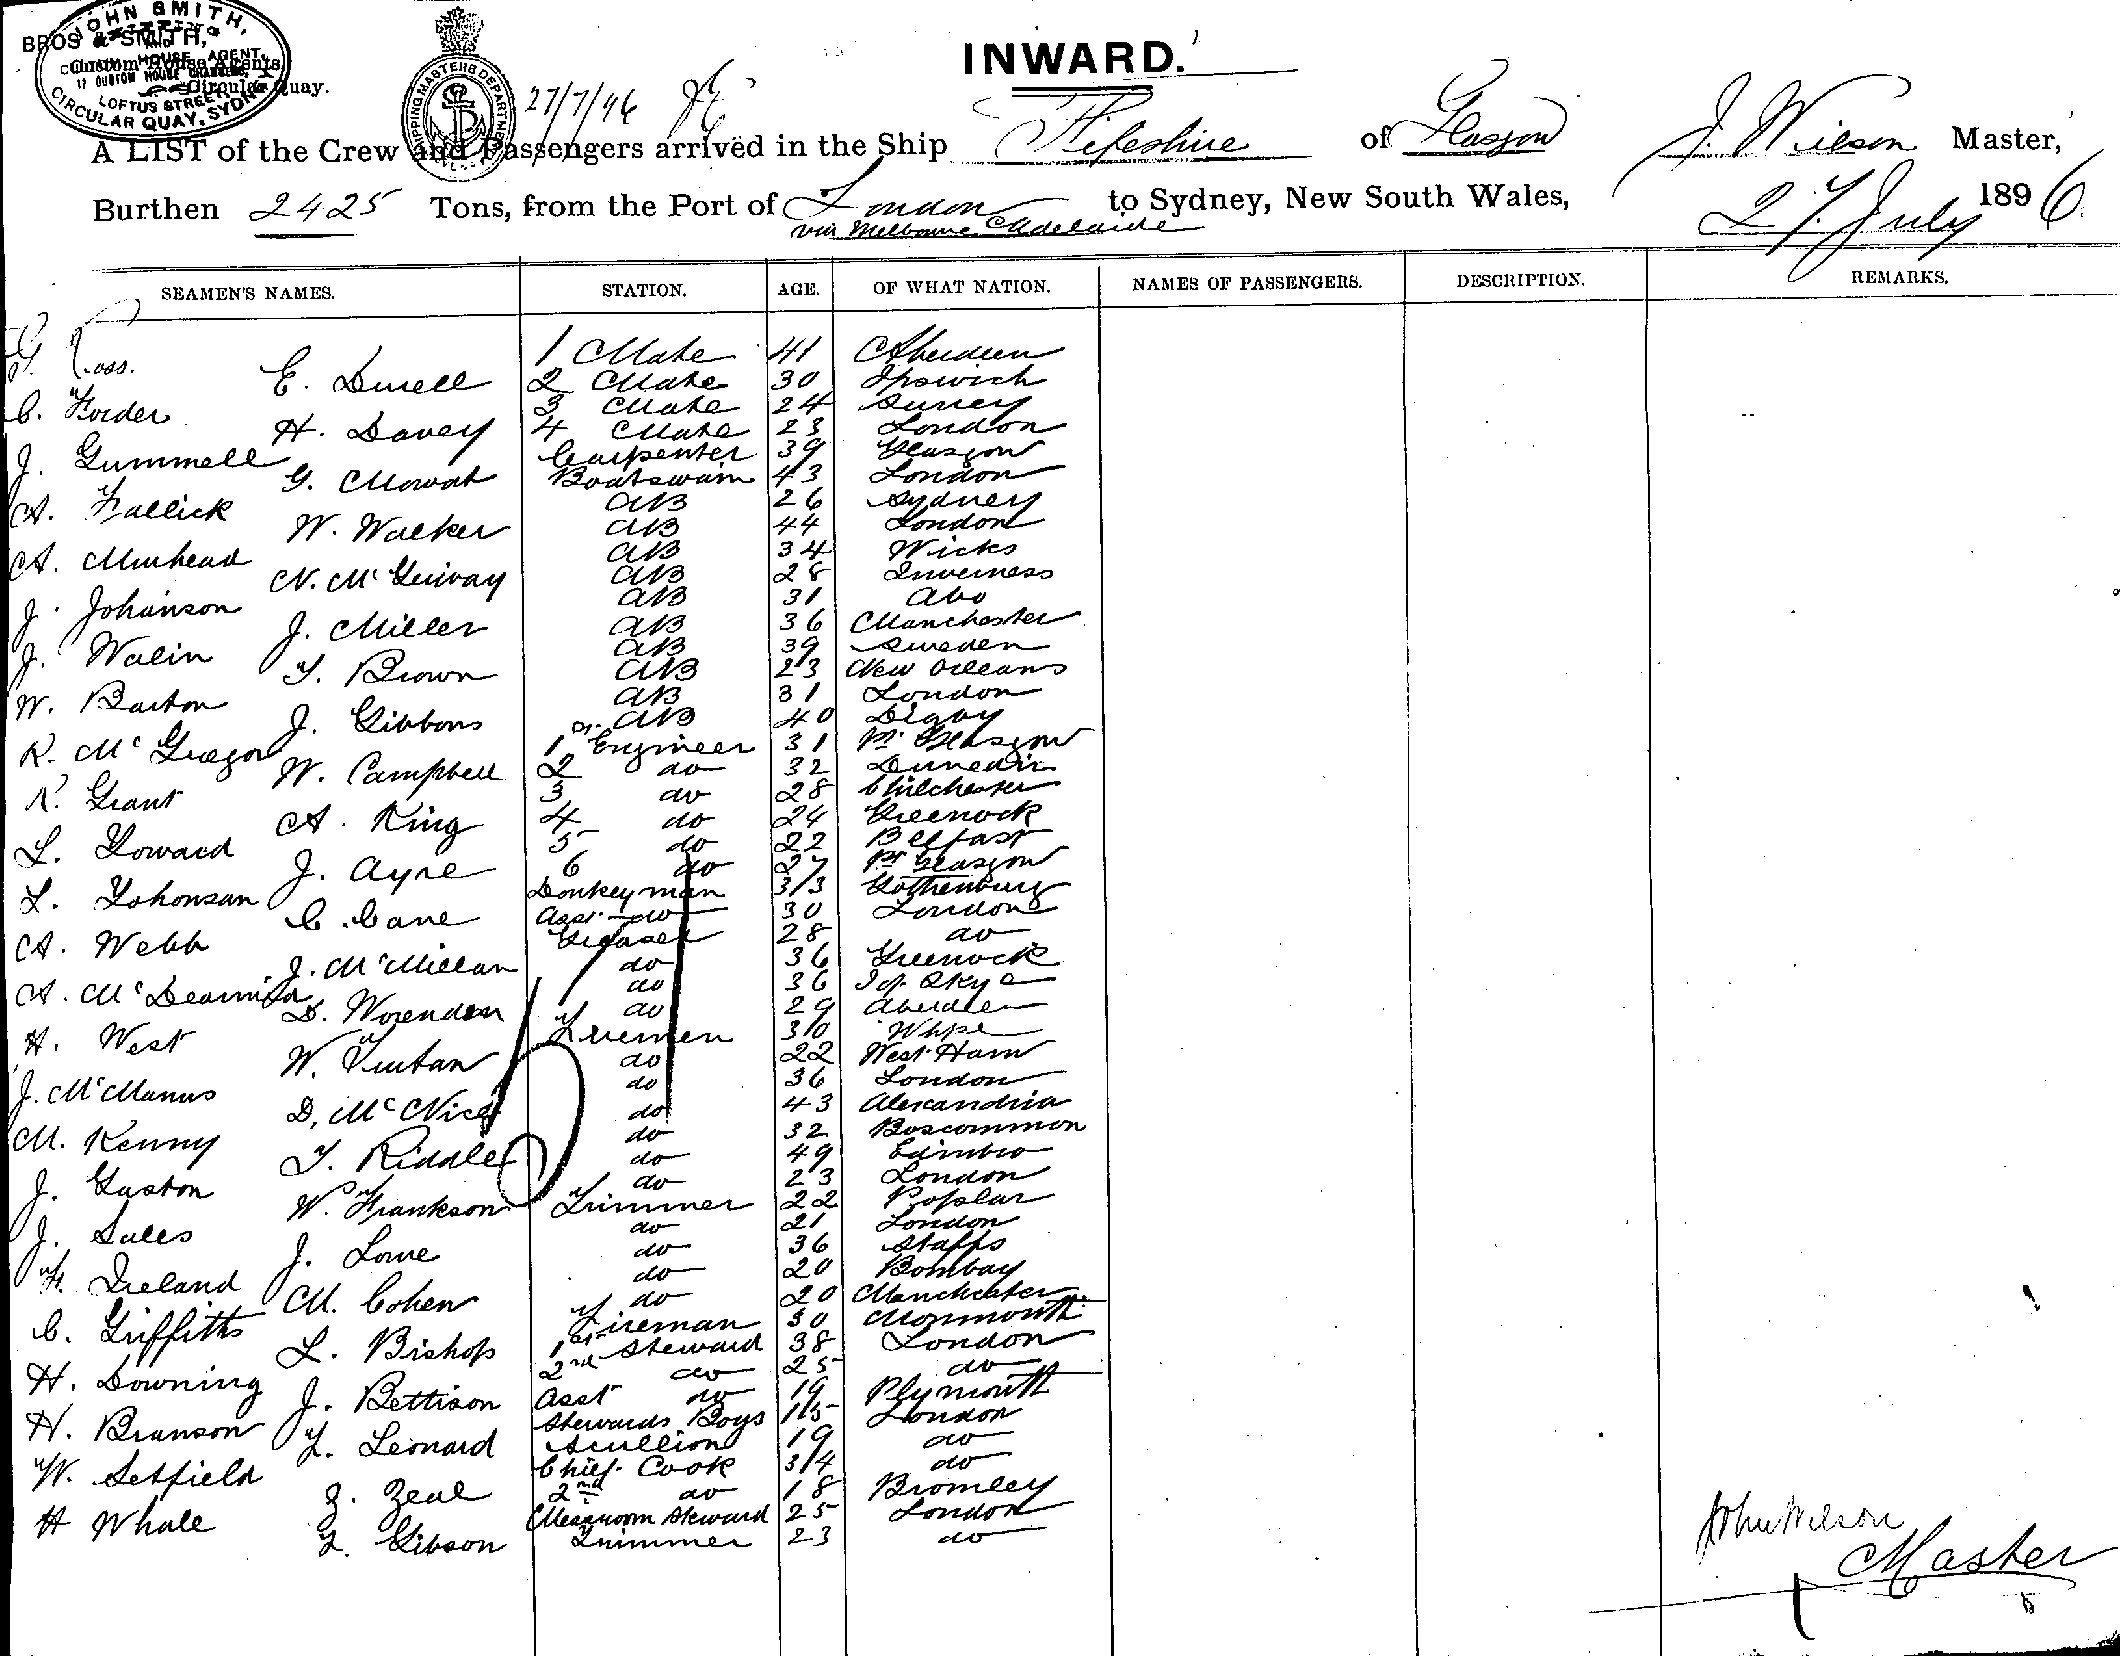 JOHN SMITH,
BROS & SMITH,
CUSTOM HOUSE AGENT,
Custom House Agents
17 CUSTOM HOUSE CHAMBERS,
Circular Quay.
LOFTUS STREET,
CIRCULAR QUAY, SYDNEY
SHIPPING MASTERS DEPARTMENT
27/7/96
INWARD.
A LIST of the Crew and Passengers arrived in the Ship Fifeshire of Glasgow J. Wilson Master,
Burthen 2425 Tons, from the Port of London to Sydney, New South Wales, 27 July 1896.
via Melbourne & Adelaide
SEAMEN'S NAMES. STATION. AGE. OF WHAT NATION. NAMES OF PASSENGERS. DESCRIPTION. REMARKS.
Ross. 1 Mate 41 Aberdeen
E. Durell 2 Mate 30 Ipswich
C. Forder 3 Mate 24 Surrey
H. Davey 4 Mate 23 London
J. Gummell Carpenter 39 Glasgow
G. Mowat Boatswain 43 London
A. Fallick AB 26 Sydney
W. Walker AB 44 London
A. Muirhead AB 34 Wicks
N. McGilvay AB 28 Inverness
J. Johanson AB 31 Abo
J. Miller AB 36 Manchester
J. Walin AB 39 Sweden
T. Brown AB 23 New Orleans
W. Barton AB 31 London
J. Gibbons AB 40 Digby
R. McGregor 1 Engineer 31 Pt Glasgow
W. Campbell 2 do 32 Dunedin
R. Grant 3 do 28 Chilchester
A. King 4 do 24 Greenock
L. Howard 5 do 22 Belfast
J. Ayre 6 do 27 Pt Glasgow
L. Yohonsan Donkeyman 33 Gothenburg
C. Cane Asst do 30 London
A. Webb Greaser 28 do
J. McMillan do 36 Greenock
A. McDearmid do 36 I of Skye
D. Worenden do 29 Aberdeen
H. West Firemen 30
W. do 22 West Ham
J. McManus do 36 London
D. McNicol do 43 Alexandria
M. Kenny do 32 Roscommon
T. Riddle do 49 Edinbro
J. Gaston do 23 London
W. Frankson Trimmer 22 Poplar
J. Sales do 21 London
J. Lowe do 36 Staffs
F. Ireland do 20 Bombay
M. Cohen do 20 Manchester
C. Griffiths Fireman 30 Monmouth
L. Bishop 1st Steward 38 London
H. Downing 2nd do 25 do
J. Bettison Asst do 19 Plymouth
H. Branson Stewards Boys 15 London
L. Leonard Scullion 19 do
W. Setfield Chief Cook 34 do
Z. Zeal 2nd do 18 Bromley
H Whale Messroom Steward 25 London
L. Gibson Trimmer 23 do
John Wilson
Master